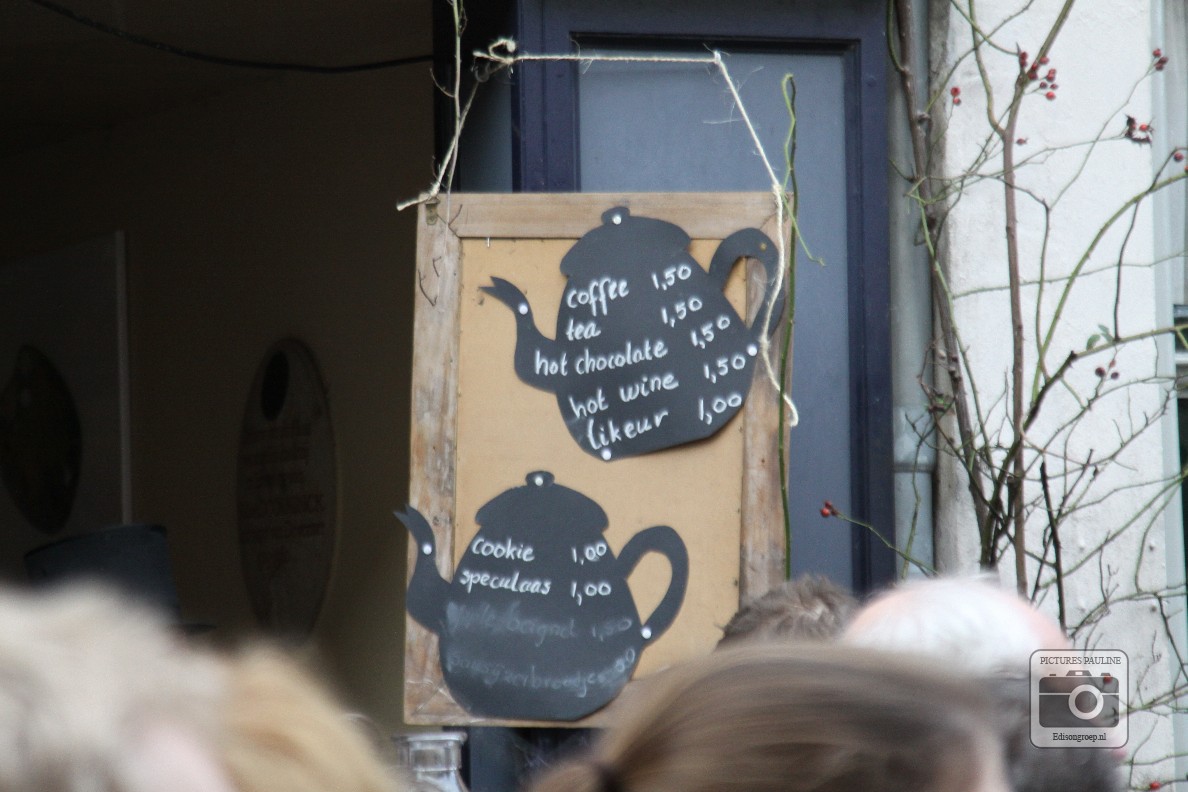 coffee 1,50
tea 1,50
hot chocolate 1,50
hot wine 1,50
likeur 1,00
cookie 1,00
speculaas 1,00
1,50
PICTURES PAULINE
Edisongroep.nl